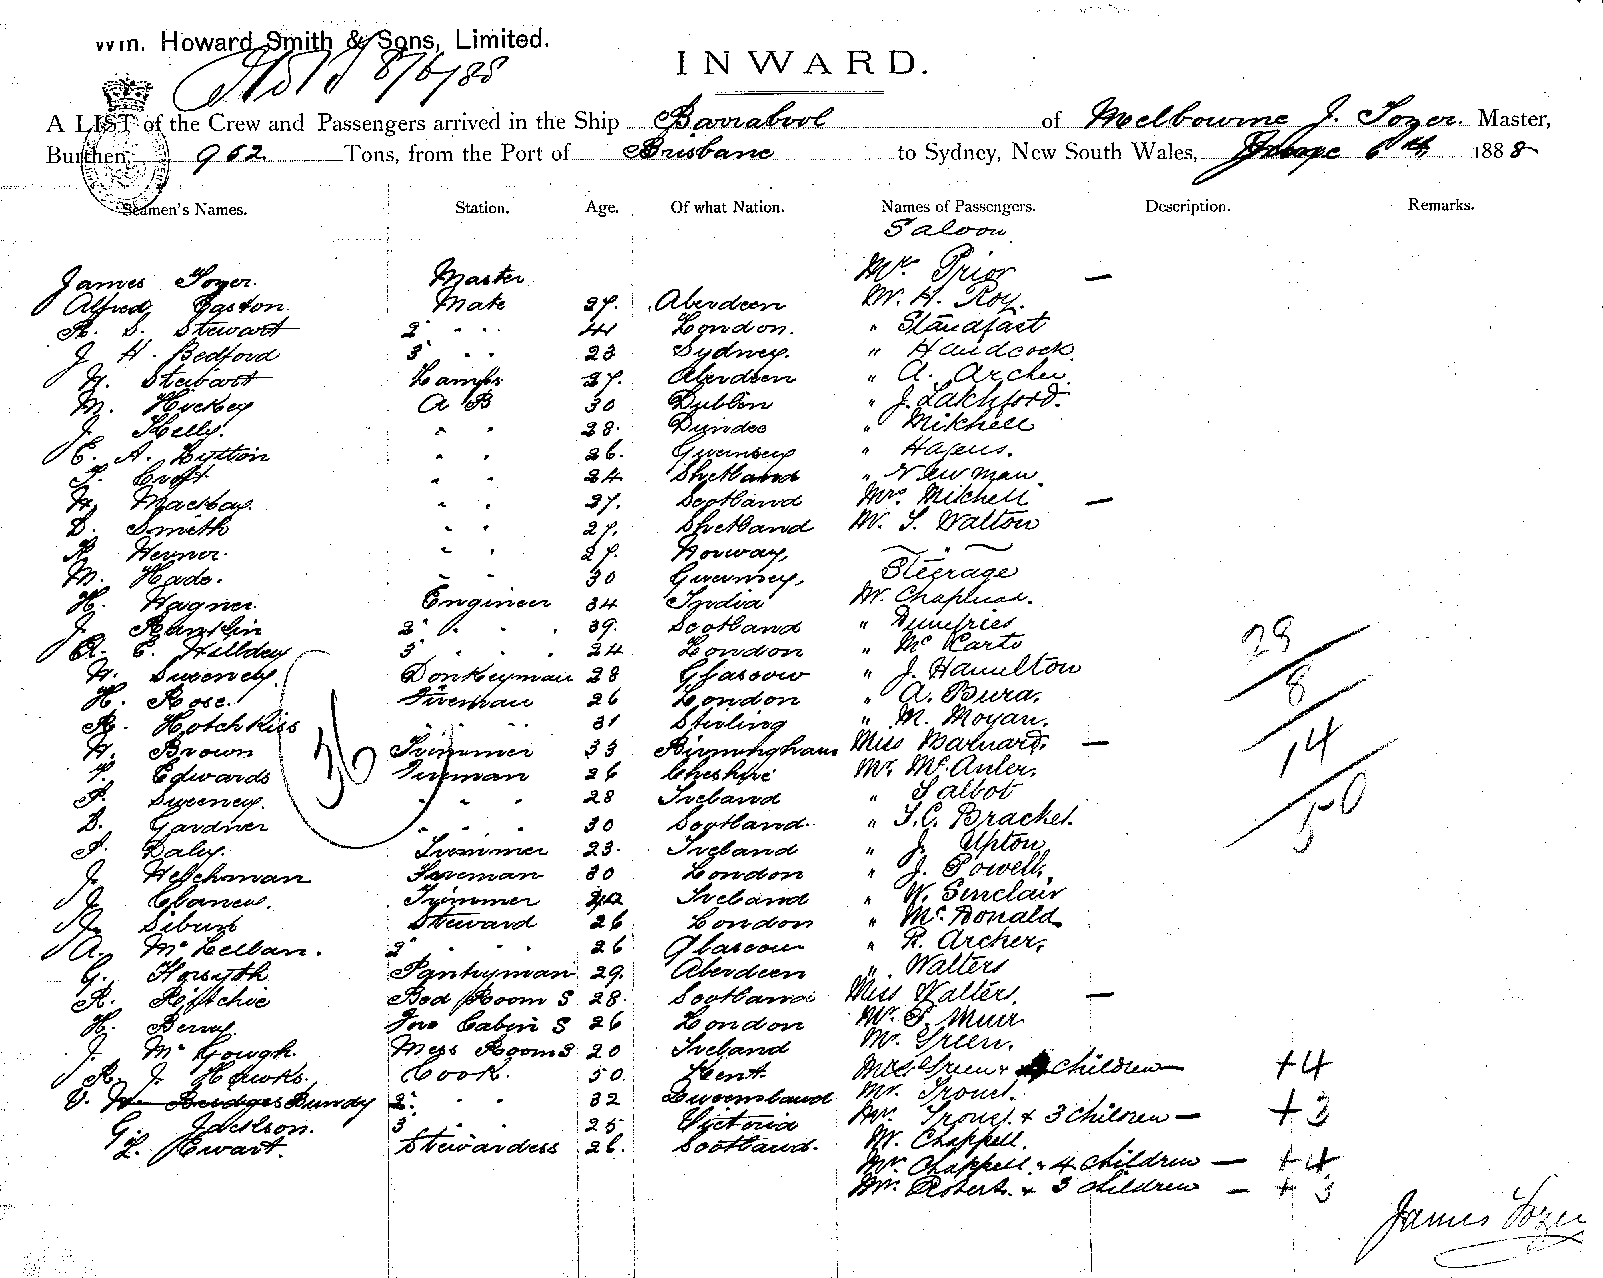 Wm. Howard Smith & Sons, Limited.
8/6/88
INWARD.
A LIST of the Crew and Passengers arrived in the Ship Barrabool of Melbourne J. Tozer. Master,
Burthen, 952 Tons, from the Port of Brisbane to Sydney, New South Wales, 6th 1888
Seamen's Names. Station. Age. Of what Nation. Names of Passengers. Description. Remarks.
Saloon
James Tozer. Master Mr Prior —
Alfred Gaston Mate 27. Aberdeen Mr. H. Roy.
R. S. Stewart 2" " " 44 London. " Standfast
J. H. Bedford 3" " " 23 Sydney. " Handcock.
W. Stewart Lamps 27. Aberdeen " A. Archer
M. Hickey A B 30 Dublin " J. Latchford.
J. Kelly. " " 28. Dundee " Mitchell
E. A. Lytton " " 26. Guernsey " Hagens.
T. Croft " " 24 Shetland " Newman.
W. Mackay. " " 37. Scotland Mrs Mitchell —
D. Smith " " 27. Shetland Mr. T. Walton
R. " " 27. Norway,
M. Hado. " " 30 Guernsey, Steerage
H. Wagner. Engineer 34 India Mr.
J. Rankin 2" " " " 39. Scotland " Dumfries
A. E. 3 " " " 24 London " McCarto
W. Sweeney. Donkeyman 28 Glasgow " J. Hamilton
H. Rose. Fireman 26 London " A. Bura.
R. Hotchkiss " " 31 Stirling " M. Moyan.
W. Brown Trimmer 33 Birmingham Miss Barnard. —
T. Edwards Fireman 26 Cheshire Mr.
P. Sweeney. " " " 28 Ireland " Talbot
D. Gardner " " " 30 Scotland. " T.C. Bracher.
P. Daley. Trimmer 23. Ireland " J. Upton,
J. Welchman Fireman 30 London " J. Powell,
J. Clancy. Trimmer Ireland " W. Sinclair
J. Steward 26 London " McDonald
A. McLellan. 2" " " " 26 Glasgow " R. Archer,
G. Forsyth Pantryman 29. Aberdeen " Walters
R. Ritchie Bed Room S 28. Scotland Miss Walters. —
H. Berry. Fore Cabin S 26 London Mr. P. Muir
J. McGough. Mess Room S 20 Ireland Mr. Green.
R. J. Hawks. Cook. 50 Kent. Mrs Green & children — +4
V. Bridges Bundy 2. " " 32 Queensland Mr.
G. Jackson. 3 " " 25 Victoria Mrs & 3 children — +3
L. Ewart. Stewardess 26. Scotland. Mr. Chappell.
Mrs Chappell. & 4 children — +4
Mrs. Robert. & 3 children — +3
36
29
8
14
50
James Tozer